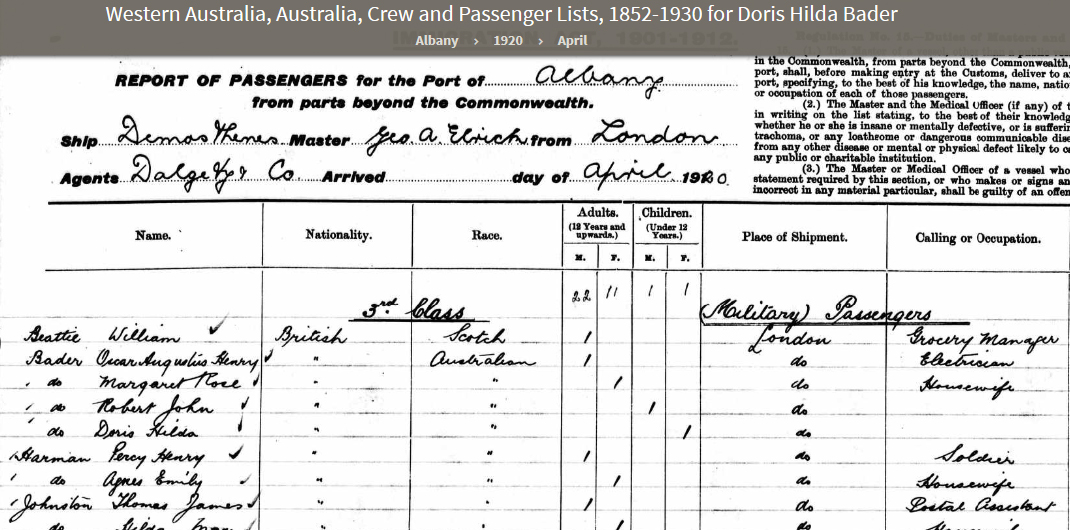 Western Australia, Australia, Crew and Passenger Lists, 1852-1930 for Doris Hilda Bader
Albany > 1920 > April
REPORT OF PASSENGERS for the Port of Albany
from parts beyond the Commonwealth.
Ship Demosthenes Master Geo. A. Elrich from London
Agents Dalgety & Co. Arrived day of April 1920.
in the Commonwealth, from parts beyond the Commonwealth,
port, shall, before making entry at the Customs, deliver to a
port, specifying, to the best of his knowledge, the name, natio
or occupation of each of those passengers.
(2.) The Master and the Medical Officer (if any) of t
in writing on the list stating, to the best of their knowledg
whether he or she is insane or mentally defective, or is sufferin
trachoma, or any loathsome or dangerous communicable dise
from any other disease or mental or physical defect likely to
any public or charitable institution.
(3.) The Master or Medical Officer of a vessel who
statement required by this section, or who makes or signs an
incorrect in any material particular, shall be guilty of an offen
Name. Nationality. Race. Adults. (12 Years and upwards.) M. F. Children. (Under 12 Years.) M. F. Place of Shipment. Calling or Occupation.
22 11 1 1
3rd Class (Military) Passengers
Beattie William British Scotch 1 London Grocery Manager
Bader Oscar Augustus Henry " Australian 1 do Electrician
do Margaret Rose " " 1 do Housewife
do Robert John " " 1 do
do Doris Hilda " " 1 do
Harman Percy Henry " " 1 do Soldier
do Agnes Emily " " 1 do Housewife
Johnston Thomas James " " 1 do Postal Assistant
do Hilda